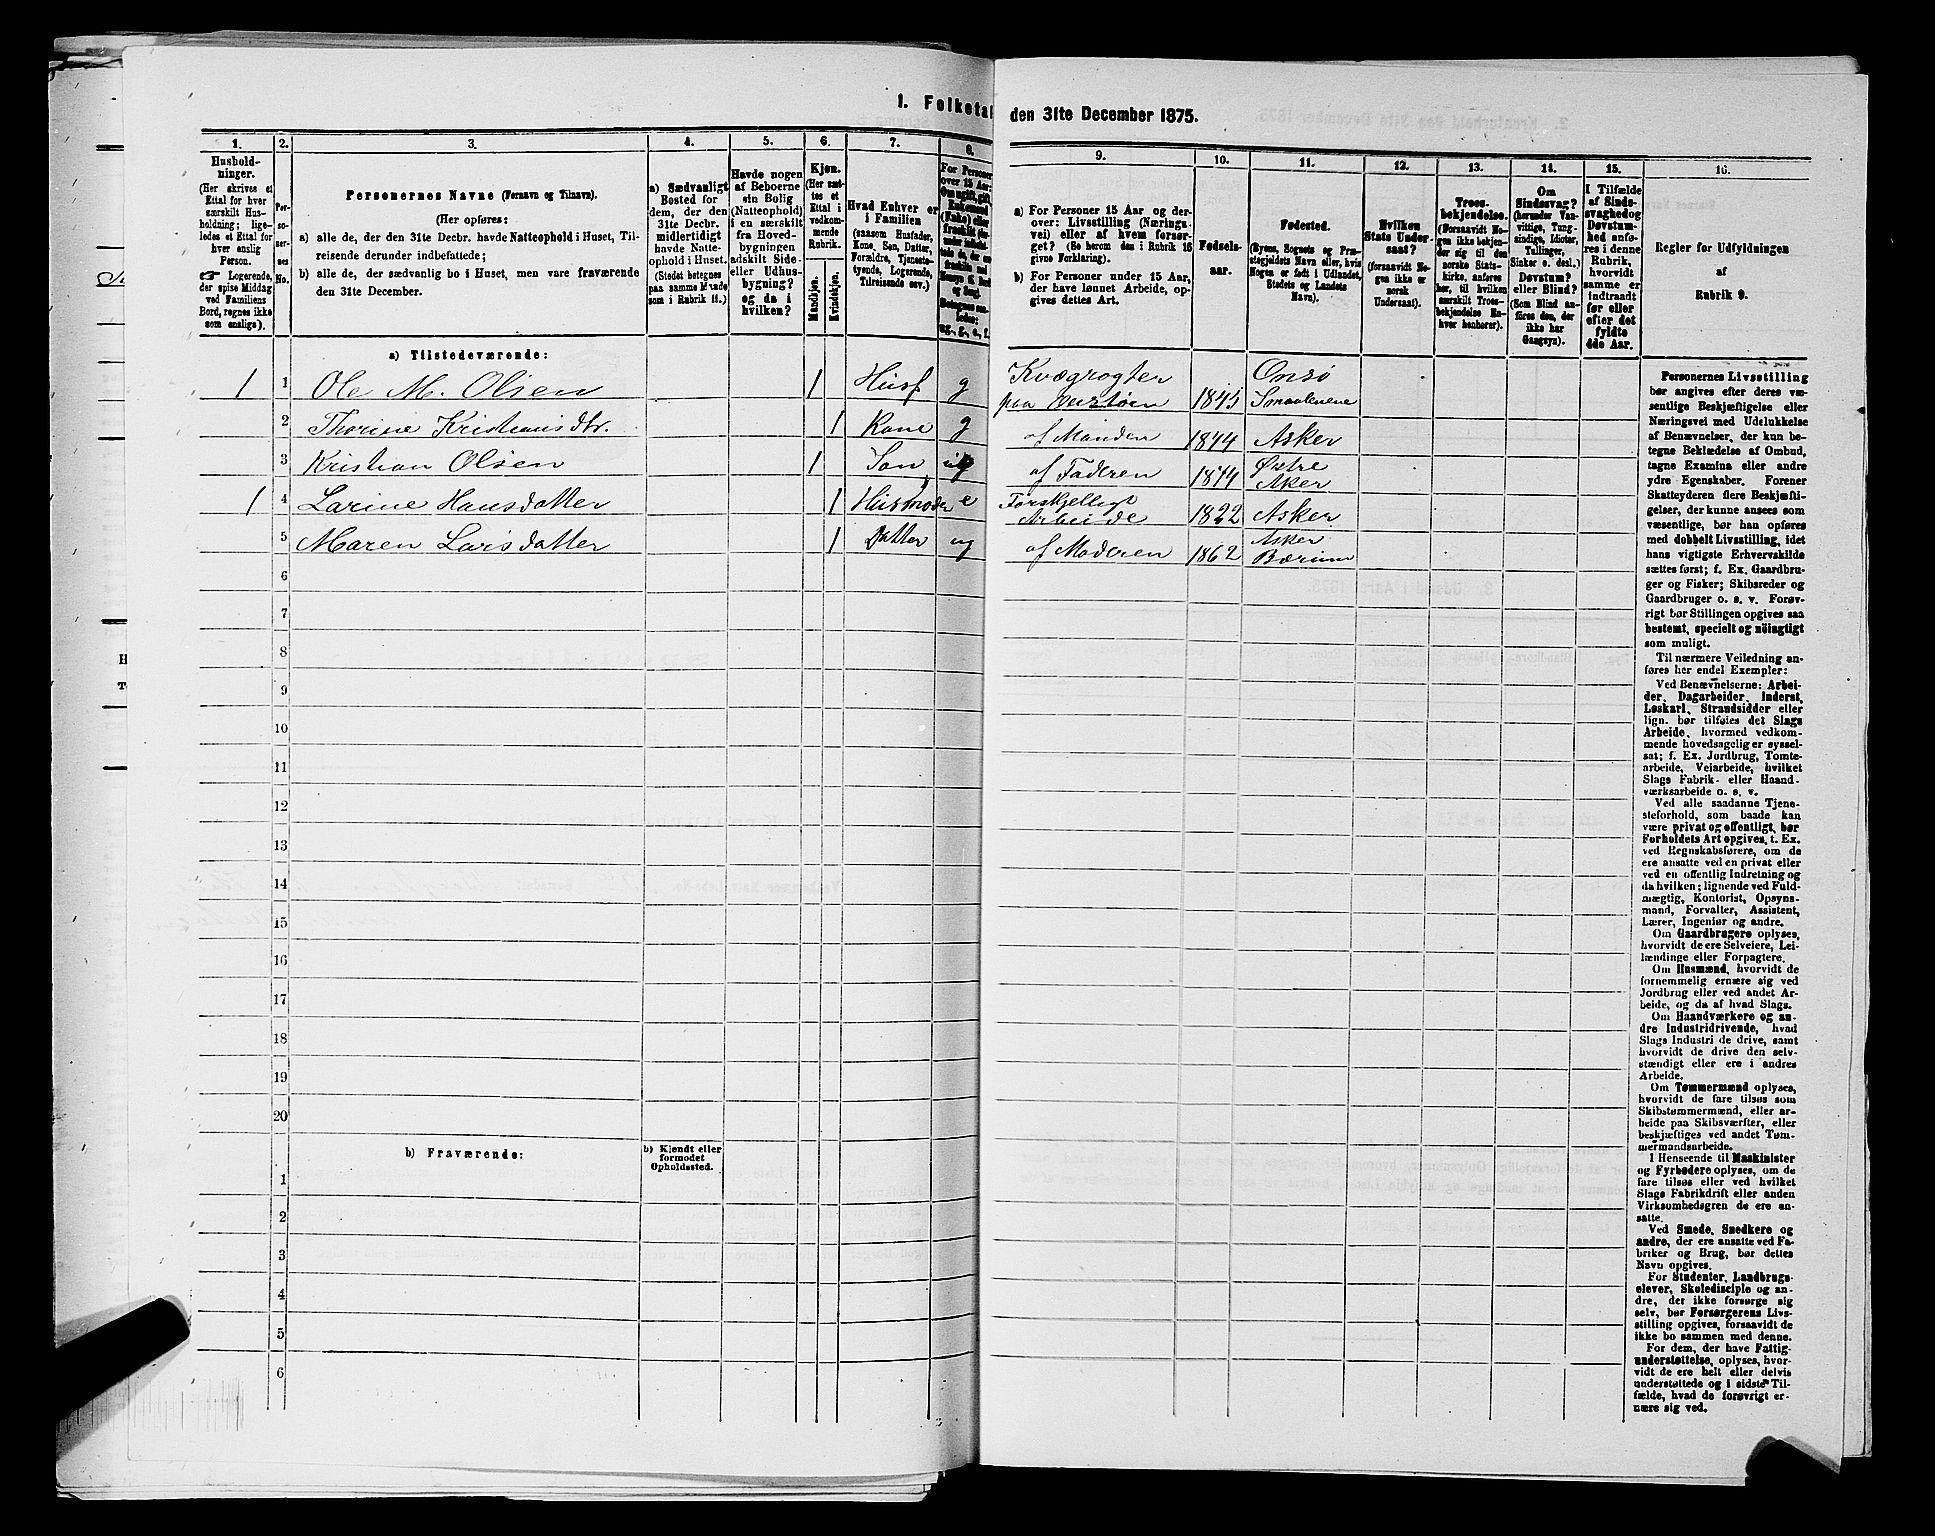 1. Folketal
den 31te December 1875.
1.
Hushold-
ninger.
(Her skrives et
Ettal for hver
særskilt Hus-
holdning; lige-
ledes et Ettal for
hver enslig
Person.
☞ Logerende,
der spise Middag
ved Familiens
Bord, regnes ikke
som enslige).
2.
Per-
so-
ner-
nes
No.
3.
Personernes Navne (Fornavn og Tilnavn).
(Her opføres:
a) alle de, der den 31te Decbr. havde Natteophold i Huset, Til-
reisende derunder indbefattede;
b) alle de, der sædvanlig bo i Huset, men vare fraværende
den 31te December.
4.
a) Sædvanligt
Bosted for
dem, der den
31te Decbr.
midlertidigt
havde Natte-
ophold i Huset.
(Stedet betegnes
paa samme Maade
som i Rubrik 11.)
5.
Havde nogen
af Beboerne
sin Bolig
(Natteophold)
i en særskilt
fra Hoved-
bygningen
adskilt Side-
eller Udhus-
bygning?
og da i
hvilken?
6.
Kjøn.
(Her sæt-
tes et
Ettal i
vedkom-
mende
Rubrik.
Mandkjøn.
Kvindekjøn.
7.
Hvad Enhver er
i Familien
(saasom Husfader,
Kone, Søn, Datter,
Forældre, Tjeneste-
tyende, Logerende,
Tilreisende osv.)
8.
For Personer
over 15 Aar:
9.
a) For Personer 15 Aar og der-
over: Livsstilling (Nærings-
vei) eller af hvem forsør-
get? (Se herom den i Rubrik 16
givne Forklaring).
b) For Personer under 15 Aar,
der have lønnet Arbeide, op-
gives dettes Art.
10.
Fødsels-
aar.
11.
Fødested.
(Byens, Sognets og Præ-
stegjeldets Navn eller, hvis
Nogen er født i Udlandet,
Stedets og Landets
Navn).
12.
Hvilken
Stats Under-
saat?
(forsaavidt No-
gen ikke er
norsk
Undersaat).
13.
Troes-
bekjendelse.
(Forsaavidt No-
gen ikke bekjen-
der sig til den
norske Stats-
kirke, anføres
her, til hvilken
særskilt Troes-
bekjendelse En-
hver henhører).
14.
Om
Sindssvag?
(herunder Van-
vittige, Tung-
sindige, Idioter,
Tullinger,
Sinker o. desl.)
Døvstum?
eller Blind?
(Som Blind an-
føres den, der
ikke har
Gangsyn).
15.
I Tilfælde
af Sinds-
svaghed og
Døvstum-
hed anfø-
res i denne
Rubrik,
hvorvidt
samme er
indtraadt
før eller
efter det
fyldte
4de Aar.
16.
Regler for Udfyldningen
af
Rubrik 9.
a) Tilstedeværende:
1 1 Ole M. Olsen 1 Husf g Kvægrøgter 1845 Onsø
paa Smaalenene
2 Thorine Kristiansdtr. 1 Kone g af Manden 1844 Asker
3 Kristian Olsen 1 Søn ug af Faderen 1874 Østre
Aker
1 4 Larine Hansdatter 1 Husmoder e Forskjelligt 1822 Asker
Arbeide
5 Maren Larsdatter 1 Datter ug af Moderen 1862 Asker
Bærum
6
7
8
9
10
11
12
13
14
15
16
17
18
19
20
b) Fraværende:
b) Kjendt eller
formodet
Opholdssted.
1
2
3
4
5
6
Personernes Livsstilling
bør angives efter deres væ-
sentlige Beskjæftigelse eller
Næringsvei med Udelukkelse
af Benævnelser, der kun be-
tegne Beklædelse af Ombud,
tagne Examina eller andre
ydre Egenskaber. Forener
Skatteyderen flere Beskjæfti-
gelser, der kunne ansees som
væsentlige, bør han opføres
med dobbelt Livsstilling, idet
hans vigtigste Erhvervskilde
sættes først; f. Ex. Gaardbru-
ger og Fisker; Skibsreder og
Gaardbruger o. s. v. Forøv-
rigt bør Stillingen opgives saa
bestemt, specielt og nöiagtigt
som muligt.
Til nærmere Veiledning an-
føres her endel Exempler:
Ved Benævnelserne: Arbei-
der, Dagarbeider, Inderst,
Løskarl, Strandsidder eller
lign. bør tilføies det Slags
Arbeide, hvormed vedkom-
mende hovedsagelig er syssel-
sat; f. Ex. Jordbrug, Tomte-
arbeide, Veiarbeide, hvilket
Slags Fabrik- eller Haand-
værksarbeide o. s. v.
Ved alle saadanne Tjene-
steforhold, som baade kan
være privat og offentligt, bør
Forholdets Art opgives, t. Ex.
ved Regnskabsførere, om de
ere ansatte ved en privat eller
ved en offentlig Indretning og
da hvilken; lignende ved Fuld-
mægtig, Kontorist, Opsyns-
mand, Forvalter, Assistent,
Lærer, Ingeniør og andre.
Om Gaardbrugere oplyses,
hvorvidt de ere Selveiere, Lei-
lændinge eller Forpagtere.
Om Husmænd, hvorvidt de
fornemmelig ernære sig ved
Jordbrug eller ved andet Ar-
beide, og da af hvad Slags.
Om Haandværkere og an-
dre Industridrivende, hvad
Slags Industri de drive, samt
hvorvidt de drive den selv-
stændigt eller ere i andres
Arbeide.
Om Tømmermænd oplyses,
hvorvidt de fare tilsøs som
Skibstømmermænd, eller ar-
beide paa Skibsværfter, eller
beskjæftiges ved andet Tøm-
mermandsarbeide.
I Henseende til Maskinister
og Fyrbødere oplyses, om de
fare tilsøs eller ved hvilket
Slags Fabrikdrift eller anden
Virksomhedsgren de ere an-
satte.
Ved Smede, Snedkere og
andre, der ere ansatte ved Fa-
briker og Brug, bør dettes
Navn opgives.
For Studenter, Landbrugs-
elever, Skoledisciple og an-
dre, der ikke forsørge sig
selv, bør Forsørgerens Livs-
stilling opgives, forsaavidt de
ikke bo sammen med denne.
For dem, der have Fattig-
understøttelse, oplyses, hvor-
vidt de ere helt eller delvis
understøttede og i sidste Til-
fælde, hvad de forøvrigt er-
nære sig ved.